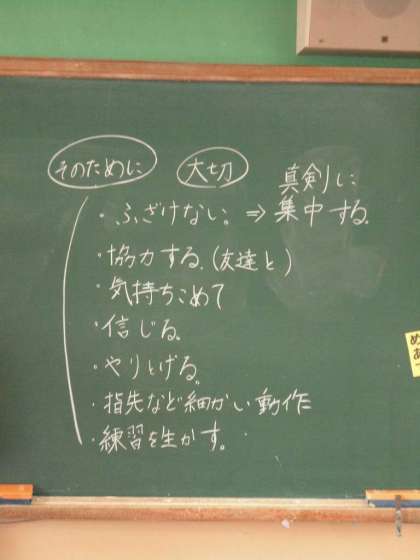 そのために 大切
・ふざけない。⇒真剣に集中する。
・協力する。(友達と)
・気持ちこめて
・信じる。
・やりとげる。
・指先など細かい動作
・練習を生かす。
めあ